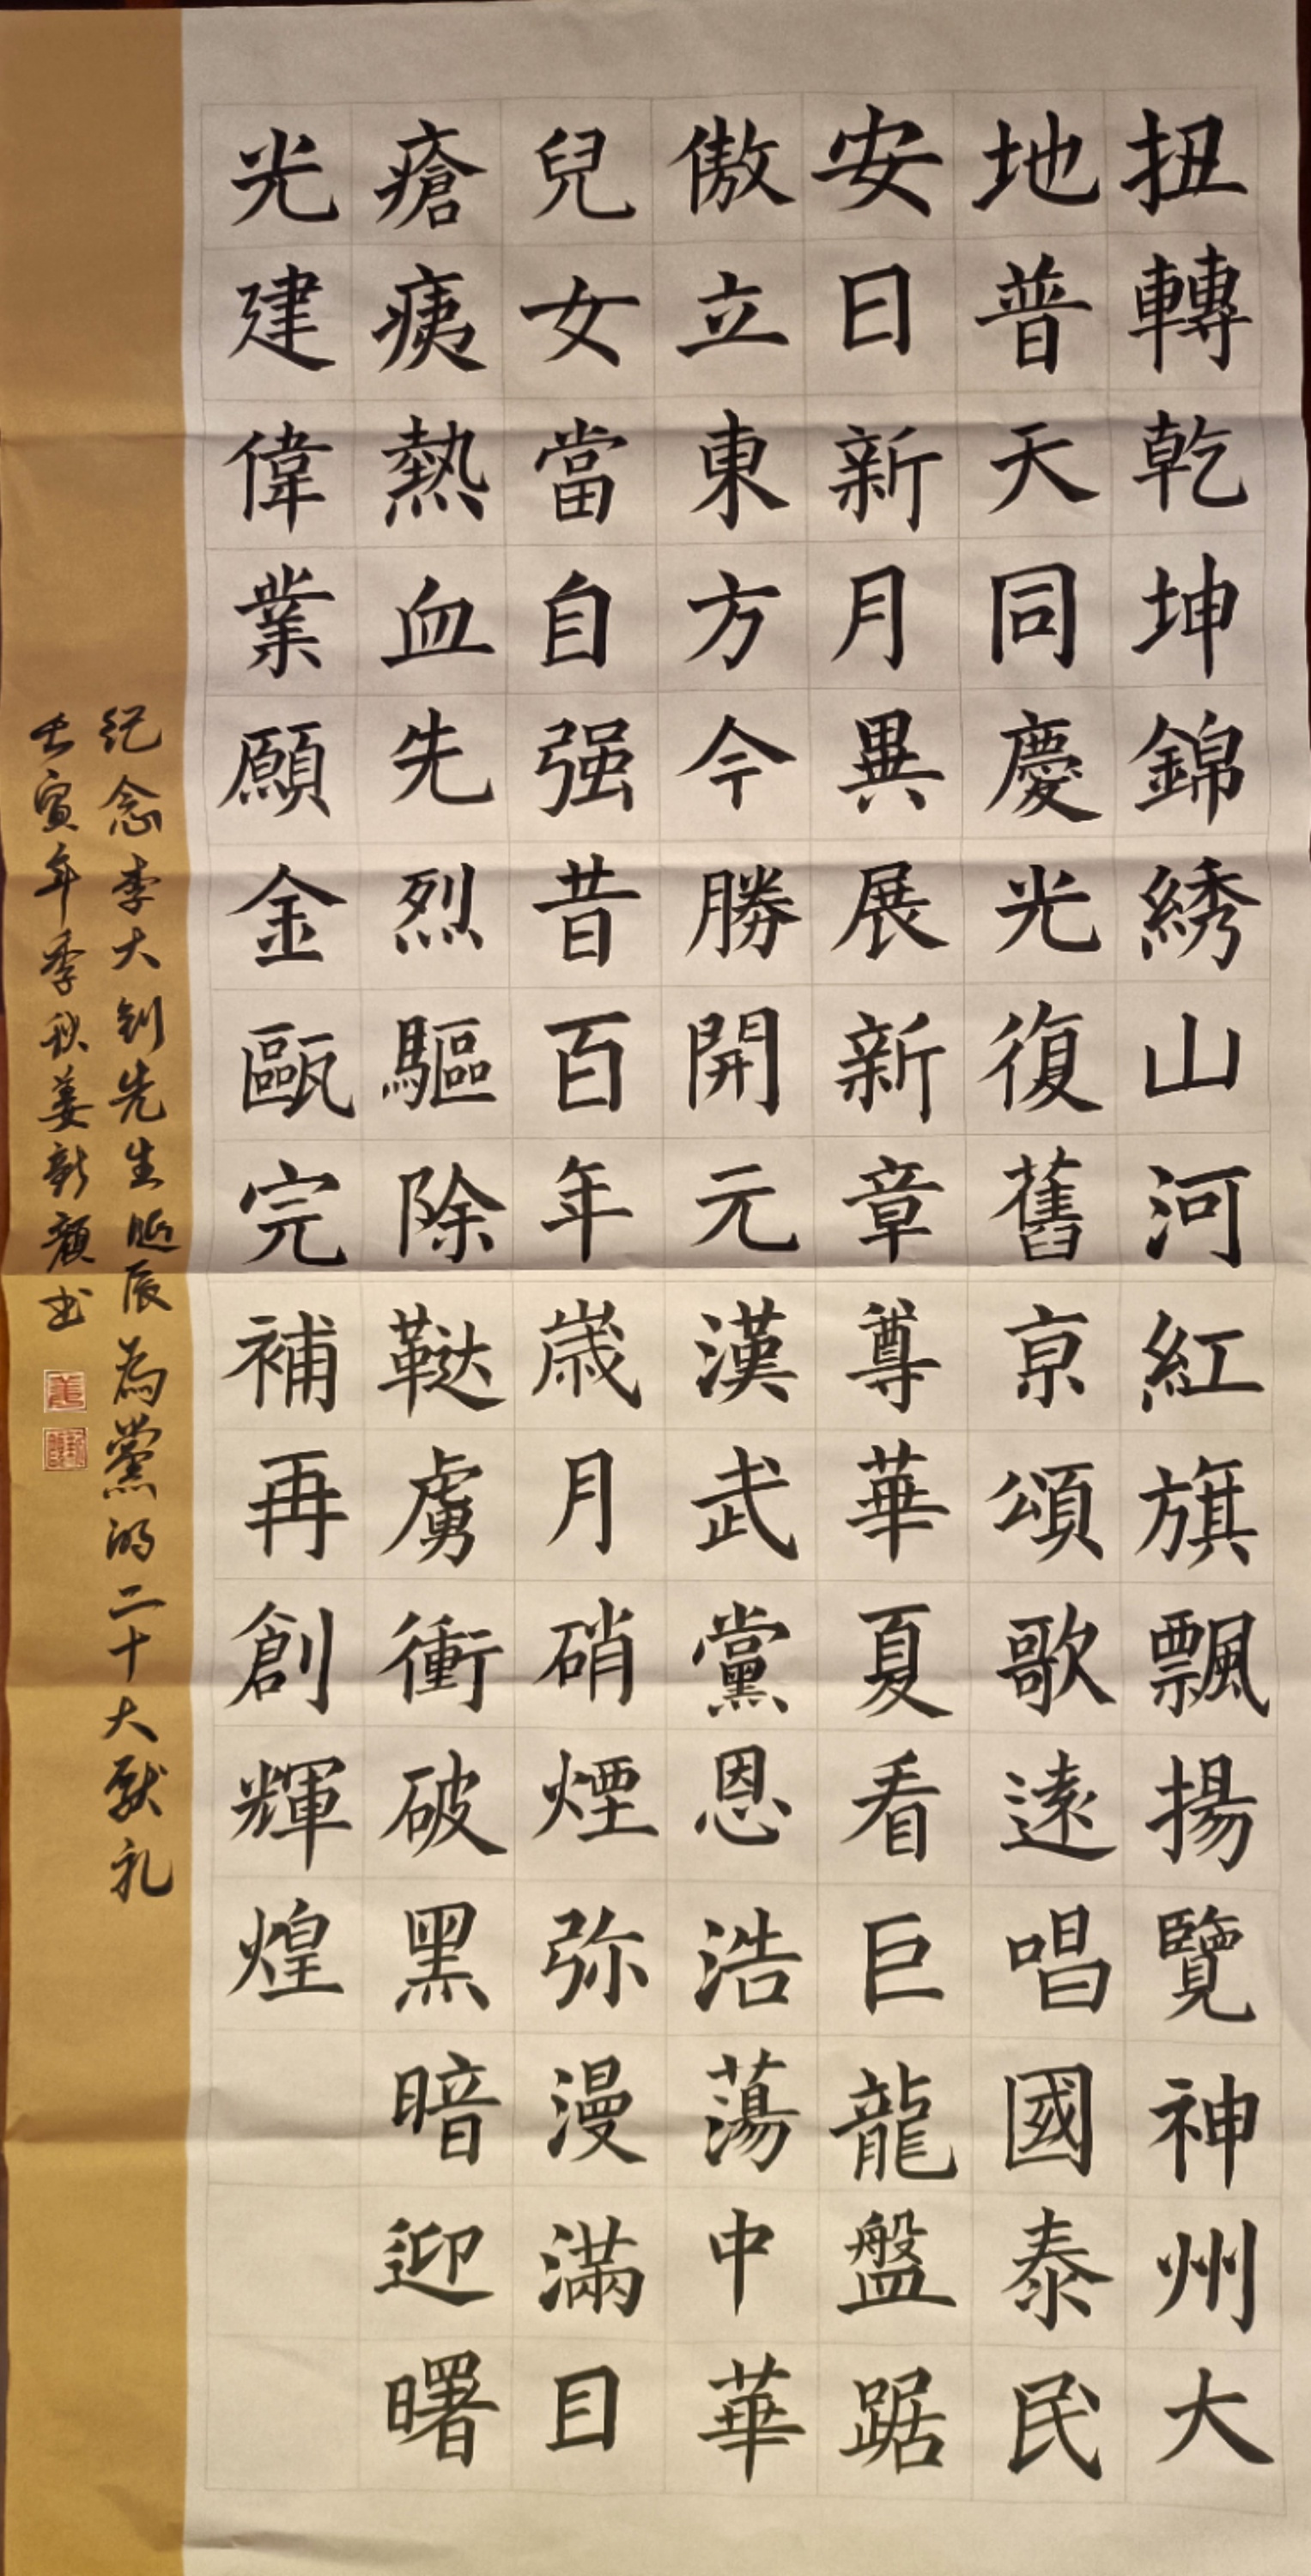 扭轉乾坤錦綉山河紅旗飄揚覽神州大
地普天同慶光復舊京頌歌遠唱國泰民
安日新月異展新章尊華夏看巨龍盤踞
傲立東方今勝開元漢武黨恩浩蕩中華
兒女當自强昔百年歲月硝煙弥漫滿目
瘡痍熱血先烈驅除韃虜衝破黑暗迎曙
光建偉業願金甌完補再創輝煌
纪念李大钊先生誕辰為黨的二十大献礼
壬寅年季秋姜新颜书